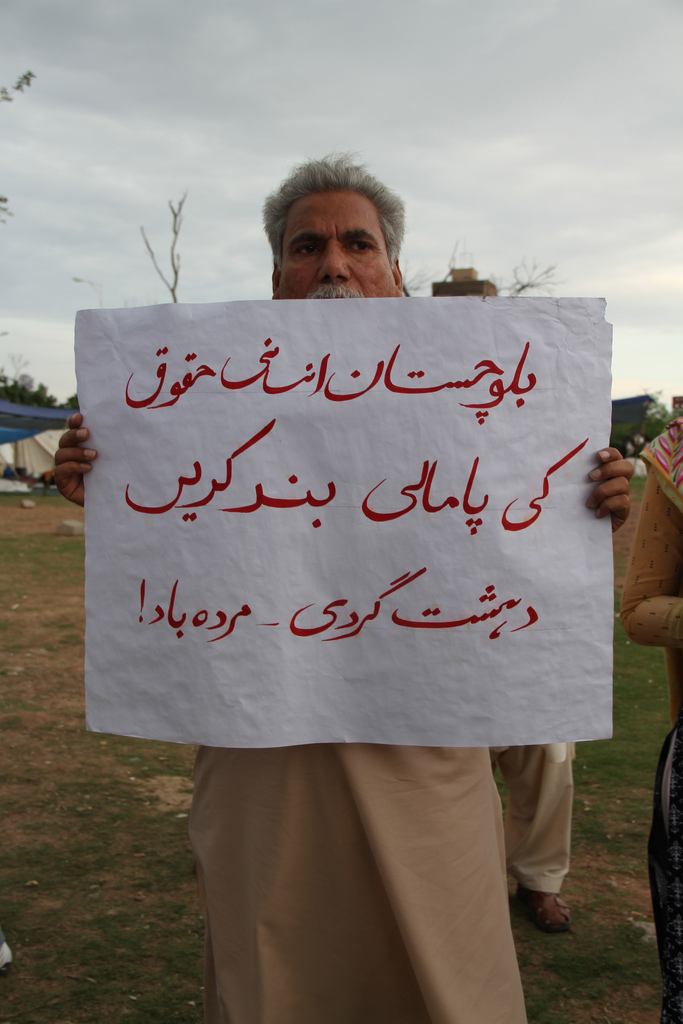 بلوچستان انسانی حقوق
کی پامالی بند کریں
دہشت گردی - مردہ باد!